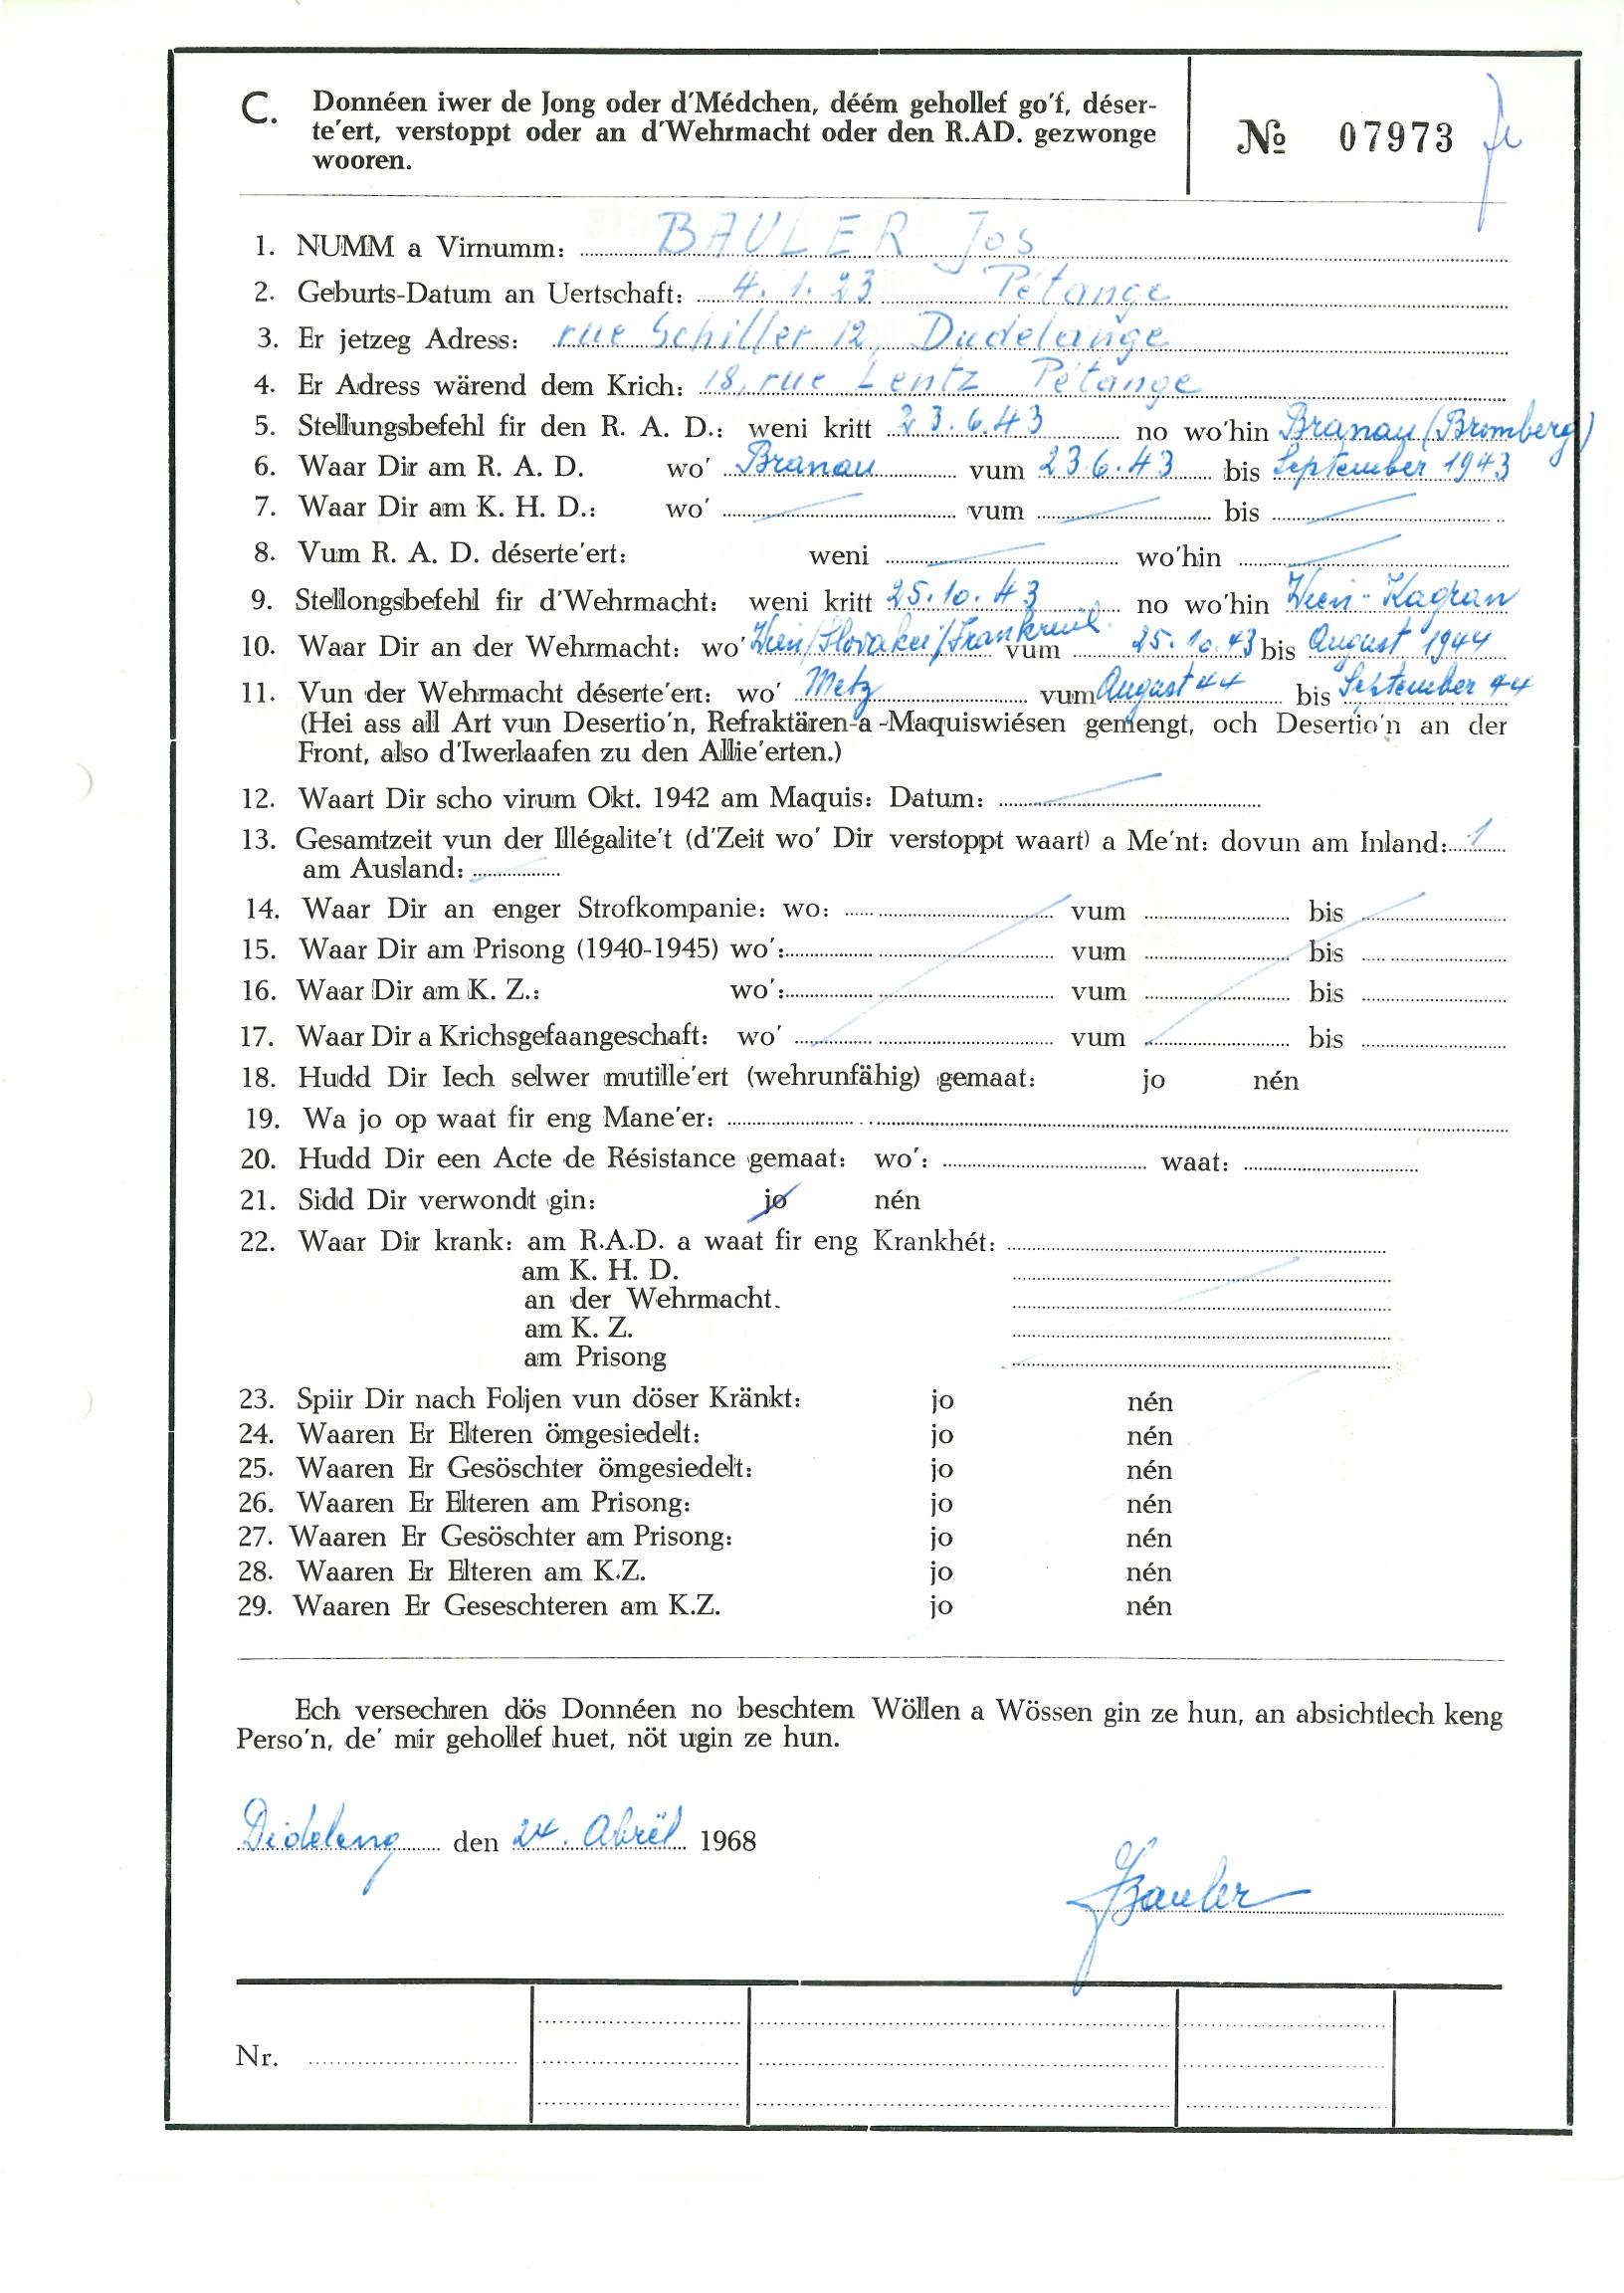 C. Donnéen iwer de Jong oder d'Médchen, déém gehollef go'f, déser-
te'ert, verstoppt oder an d'Wehrmacht oder den R.AD. gezwonge
wooren.
№ 07973
1. NUMM a Virnumm: BAULER Jos
2. Geburts-Datum an Uertschaft: 4. 1. 23 Pétange
3. Er jetzeg Adress: rue Schiller 12, Dudelange
4. Er Adress wärend dem Krich: 18, rue Lentz Pétange
5. Stellungsbefehl fir den R. A. D.: weni kritt 23.6.43 no wo'hin Branau (Bromberg)
6. Waar Dir am R. A. D. wo' Branau vum 23.6.43 bis September 1943
7. Waar Dir am K. H. D.: wo' vum bis
8. Vum R. A. D. déserte'ert: weni wo'hin
9. Stellongsbefehl fir d'Wehrmacht: weni kritt 25.10.43 no wo'hin Wien-Kagran
10. Waar Dir an der Wehrmacht: wo' Wien/Slovakei/Frankreich vum 25.10.43 bis August 1944
11. Vun der Wehrmacht déserte'ert: wo' Metz vum August 44 bis September 44
(Hei ass all Art vun Desertio'n, Refraktären-a -Maquiswiésen gemengt, och Desertio'n an der
Front, also d'Iwerlaafen zu den Allie'erten.)
12. Waart Dir scho virum Okt. 1942 am Maquis: Datum:
13. Gesamtzeit vun der Illégalite't (d'Zeit wo' Dir verstoppt waart) a Me'nt: dovun am Inland: 1
am Ausland:
14. Waar Dir an enger Strofkompanie: wo: vum bis
15. Waar Dir am Prisong (1940-1945) wo': vum bis
16. Waar Dir am K. Z.: wo': vum bis
17. Waar Dir a Krichsgefaangeschaft: wo' vum bis
18. Hudd Dir Iech selwer mutille'ert (wehrunfähig) gemaat: jo nén
19. Wa jo op waat fir eng Mane'er:
20. Hudd Dir een Acte de Résistance gemaat: wo': waat:
21. Sidd Dir verwondt gin: jo nén
22. Waar Dir krank: am R.A.D. a waat fir eng Krankhét:
am K. H. D.
an der Wehrmacht.
am K. Z.
am Prisong
23. Spiir Dir nach Foljen vun döser Kränkt: jo nén
24. Waaren Er Elteren ömgesiedelt: jo nén
25. Waaren Er Gesöschter ömgesiedelt: jo nén
26. Waaren Er Elteren am Prisong: jo nén
27. Waaren Er Gesöschter am Prisong: jo nén
28. Waaren Er Elteren am K.Z. jo nén
29. Waaren Er Geseschteren am K.Z. jo nén
Ech versechren dös Donnéen no beschtem Wöllen a Wössen gin ze hun, an absichtlech keng
Perso'n, de' mir gehollef huet, nöt ugin ze hun.
Dideleng den 24. Abrël 1968
JBauler
Nr.